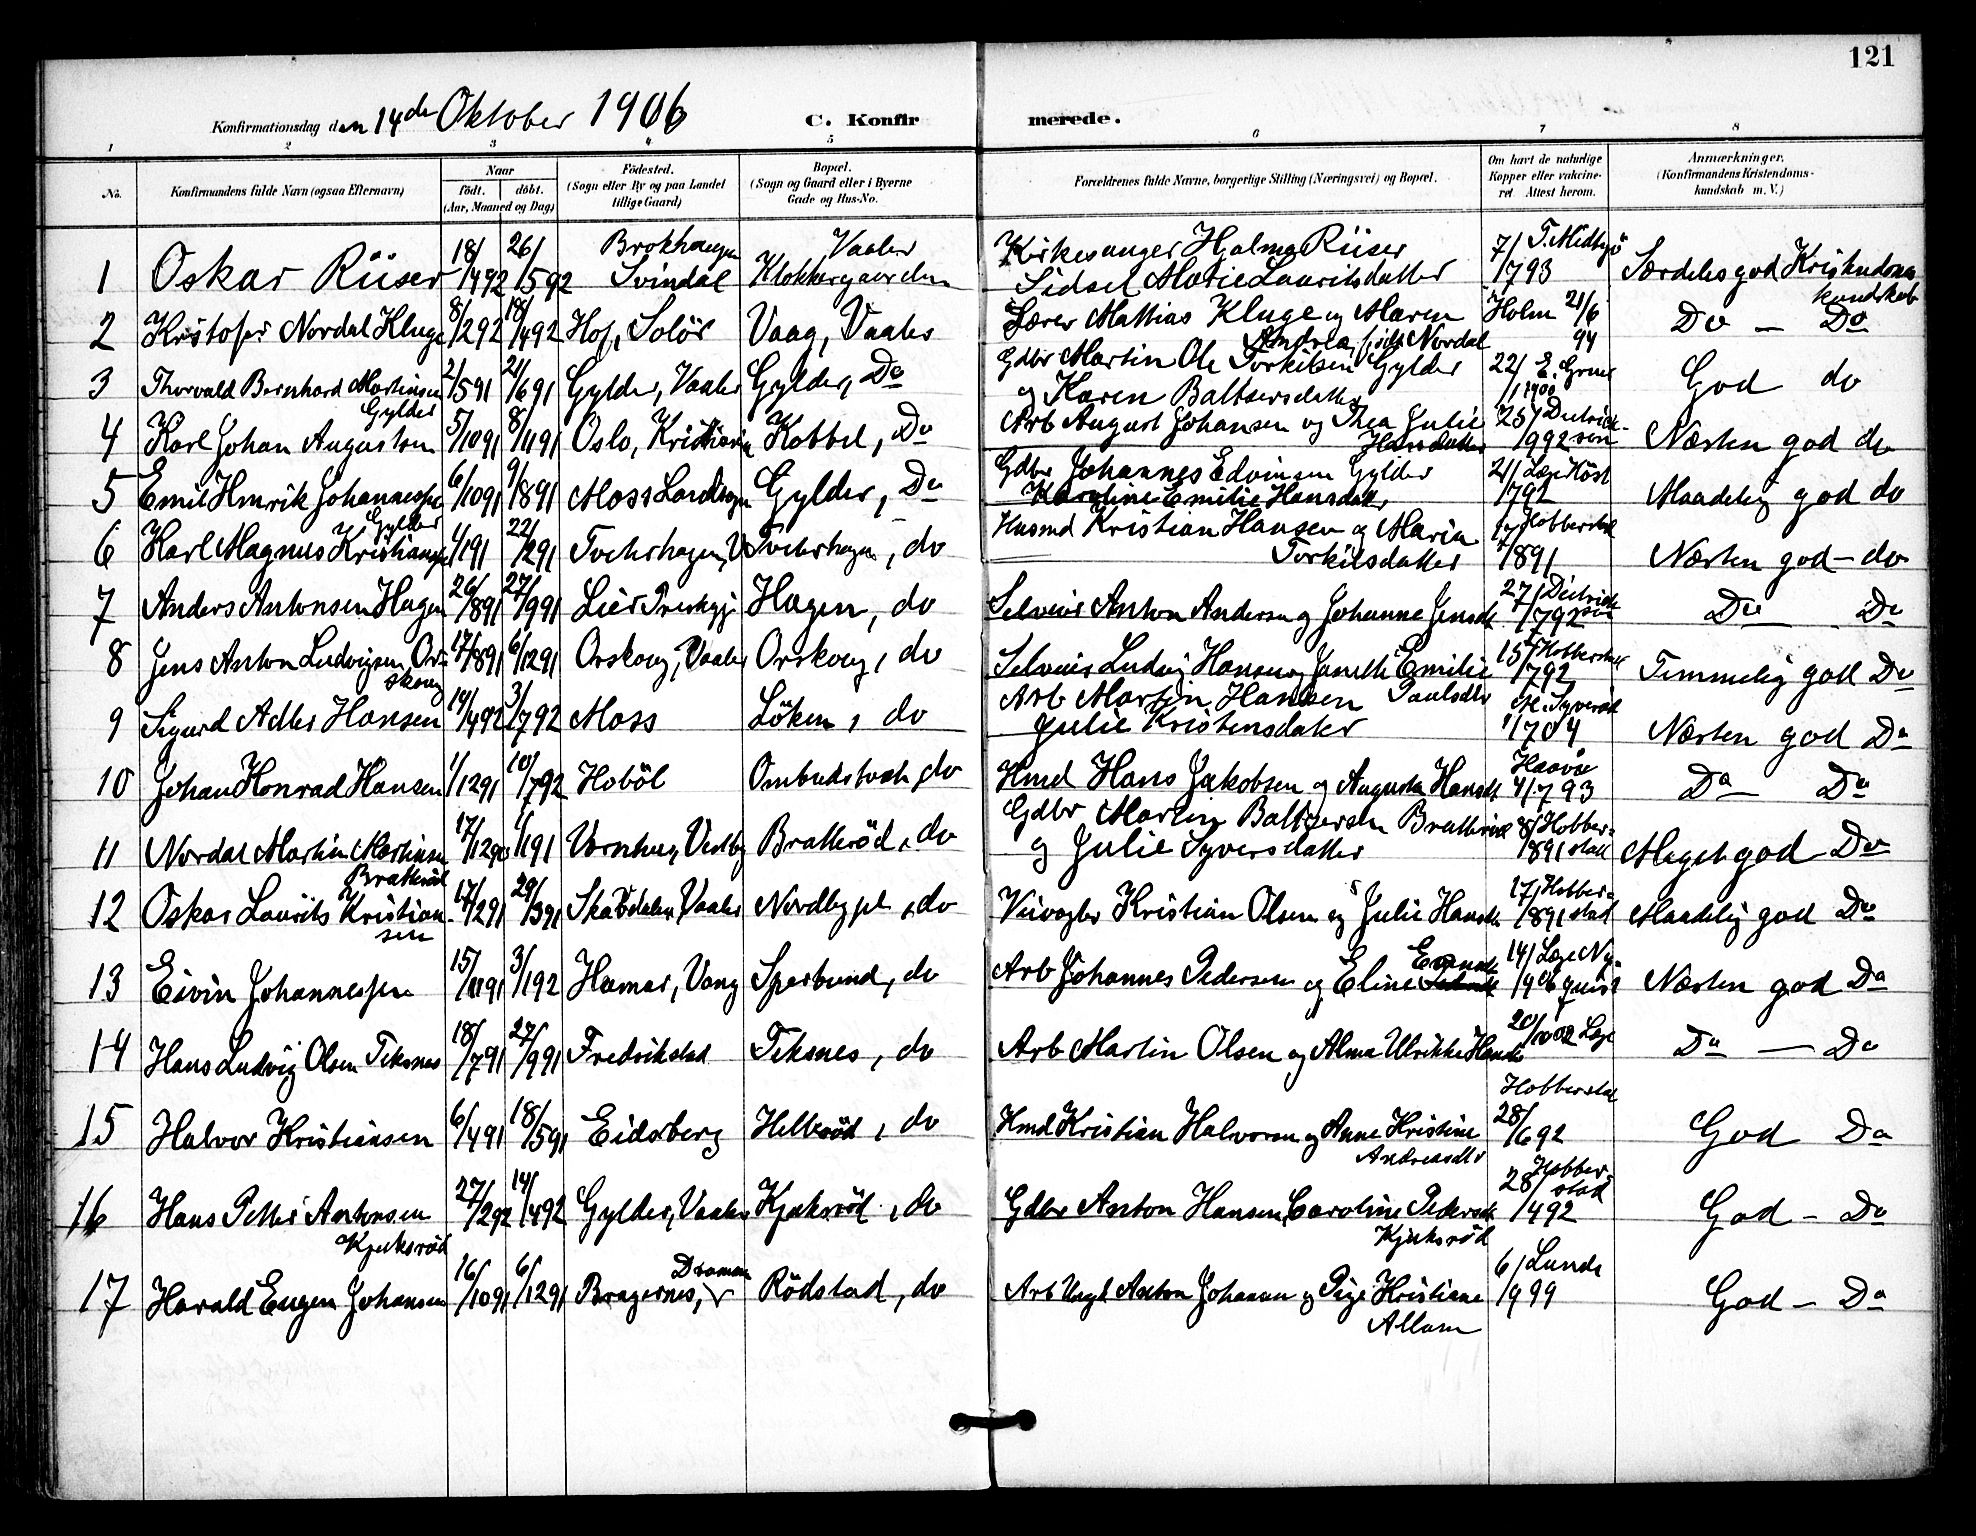 121
Konfirmationsdag den 14de Oktober 1906 C. Konfirmerede.
1 2 3 4 5 6 7 8
No. Konfirmandens fulde Navn (ogsaa Efternavn) Naar født. døbt. (Aar, Maaned og Dag) Fødested. (Sogn eller By og paa Landet tillige Gaard) Bopæl. (Sogn og Gaard eller i Byerne Gade og Hus-No. Forældrenes fulde Navne, borgerlige Stilling (Næringsvei) og Bopæl. Om havt de naturlige Kopper eller vaccineret. Attest herom. Anmærkninger. (Konfirmandens Kristendomskundskab m. V.)
1 Oskar Riiser 18/492 26/592 Brokhaugen Svindal Vaaler Klokkergaarden Kirkesanger Hjalmar Riiser Sidsel Marie Lauritsdatter 7/793 T. Midbyö Særdeles god Kristendomskundskab
2 Kristofer Nordal Kluge 8/292 18/492 Hof, Solör Vaag, Vaaler Lærer Mathias Kluge og Maren Andrea, född Nordal Holm 21/6 94 Do — Do
3 Thorvald Bernhard Martinsen Gylder 2/591 21/691 Gylder, Vaaler Gylder, Do Gdbr Martin Ole Torkilsen Gylder og Karen Baltsersdatter 22/1 1900 God do
4 Karl Johan Augustsen 5/1091 8/1191 Oslo, Kristiania Kabbel, Do Arb August Johansen og Thea Julie Hansdatter 25/992 Dietrichsen Næsten god do
5 Emil Henrik Johannessen Gylder 6/1091 9/891 Moss Landsogn Gylder, Do Gdbr Johannes Edvinsen Gylder Karoline Emilie Hansdatr 21/792 Læge Höst Maadelig god do
6 Karl Magnus Kristiansen 4/191 22/291 Tveterhagen, V Tveterhagen, do Husmd Kristian Hansen og Maria Torkilsdatter 17/891 Hobberstad Næsten god — do
7 Anders Antonsen Hagen 26/891 27/991 Lier Prestgj Hagen, do Selveier Anton Andersen og Johanne Jensdt 27/792 Dietrichsen Do Do
8 Jens Anton Ludvigsen Orskoug 17/891 6/1291 Orskoug, Vaaler Orskoug, do Selveier Ludvig Hansen og Janethe Emilie Paulsdtr 15/792 Hobberstad Temmelig god Do
9 Sigurd Adler Hansen 14/492 3/792 Moss Löken, do Arb Martin Hansen Julie Kristensdater Næsten god Do
10 Johan Konrad Hansen 1/1291 10/792 Hoböl Ombudstvedt, do Hmd Hans Jakobsen og Augusta Hansdt 4/793 Haavie Do Do
11 Nordal Martin Martinsen Bratteröd 17/1290 1/191 Varnhus, Vestby Bratteröd, do Gdbr Martin Baltzersen Bratteröd og Julie Syversdatter 8/891 Hobberstad Meget god Do
12 Oskar Laurits Kristiansen 17/291 29/391 Skabodalen, Vaaler Nordby pl, do Kristian Olsen og Julie Hansdt 17/891 Hobberstad Maadelig god Do
13 Eivin Johannessen 15/1191 3/192 Hamar, Vang Sperbund, do Arb Johannes Pedersen og Eline 14/1906 Læge Nyquist Næsten god Do
14 Hans Ludvig Olsen Teksnes 18/791 27/991 Fredrikstad Teksnes, do Arb Martin Olsen og Alma Ulrikke Hansdt Do — Do
15 Halvor Kristiansen 6/491 18/591 Eidsberg Helleröd, do Hmd Kristian Halvorsen og Anne Kristine Andreasdtr 28/692 Hobberstad God Do
16 Hans Petter Antonsen Kjeksröd 27/292 14/492 Gylder, Vaaler Kjeksröd, do Gdbr Anton Hansen, Caroline Pedersdt Kjeksröd 28/492 Hobberstad God — Do
17 Harald Eugen Johansen 16/1091 6/1291 Bragernes, Drammen Rödstad, do Arb Ungk Anton Johansen og Pige Kristiane 6/999 Lunde God — Do